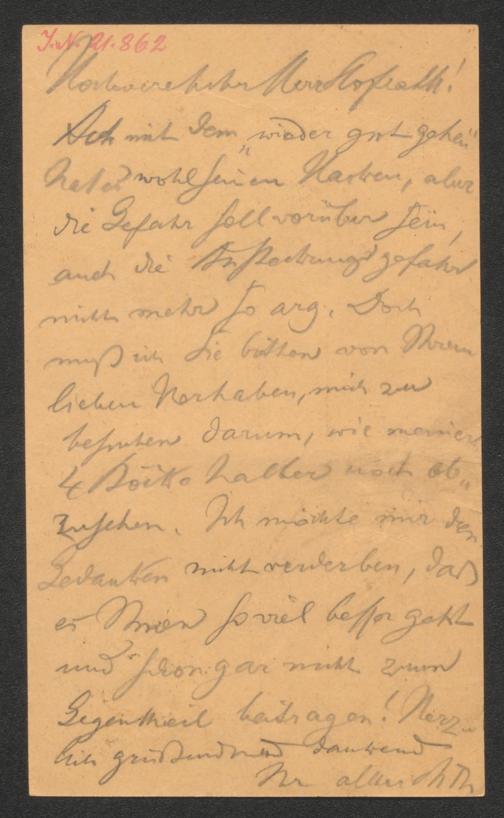 J.N. 21.862
Hochverehrter Herr Hofrath!
Ach mit dem "wieder gut gehen"
hat es wohl seinen Haken, aber
die Gefahr soll vorüber sein,
auch die Ansteckungsgefahr
nicht mehr so arg. Doch
muß ich Sie bitten von Ihrem
lieben Vorhaben, mich zu
besuchen darum, wie meiner
4 halber noch ab-
zusehen. Ich möchte mir den
Gedanken nicht verderben, daß
es Ihnen so viel besser geht
und schon gar nicht zum
Gegentheil beitragen! Herz-
lich grüßend und dankend
Ihr